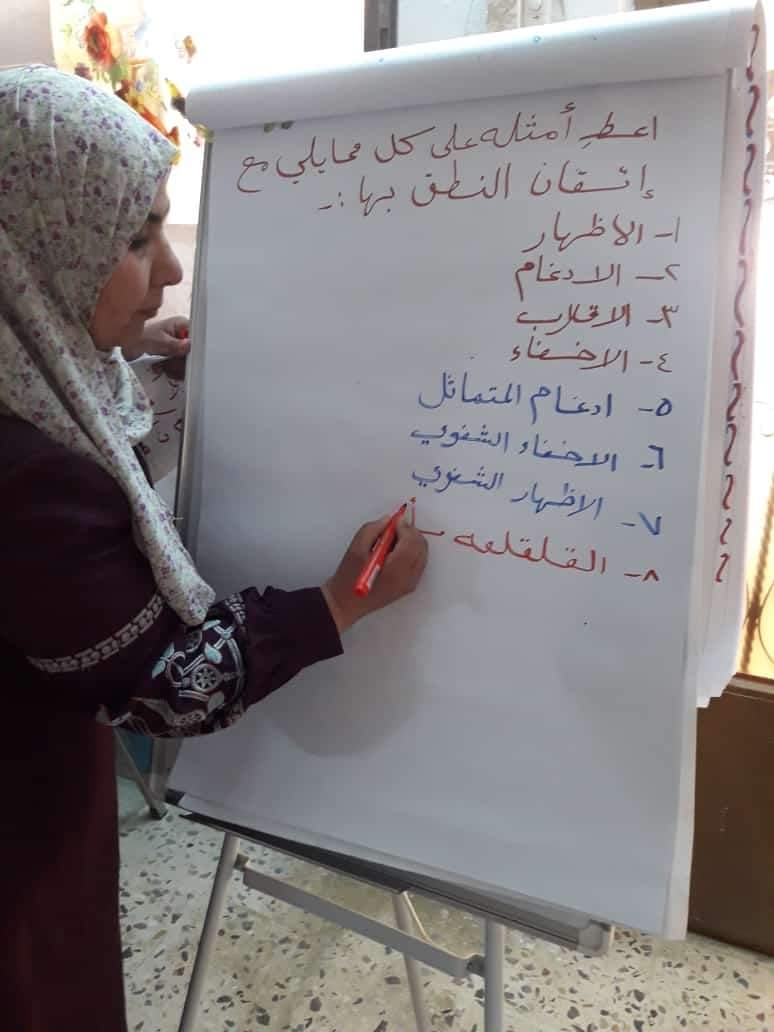 اعطِ أمثله على كل مما يلي مع
إتقان النطق بها :-
١- الاظهار
٢- الادغام
٣- الاقلاب
٤- الاخفاء
٥- ادغام المتماثل
٦- الاخفاء الشفوي
٧- الاظهار الشفوي
٨- القلقله